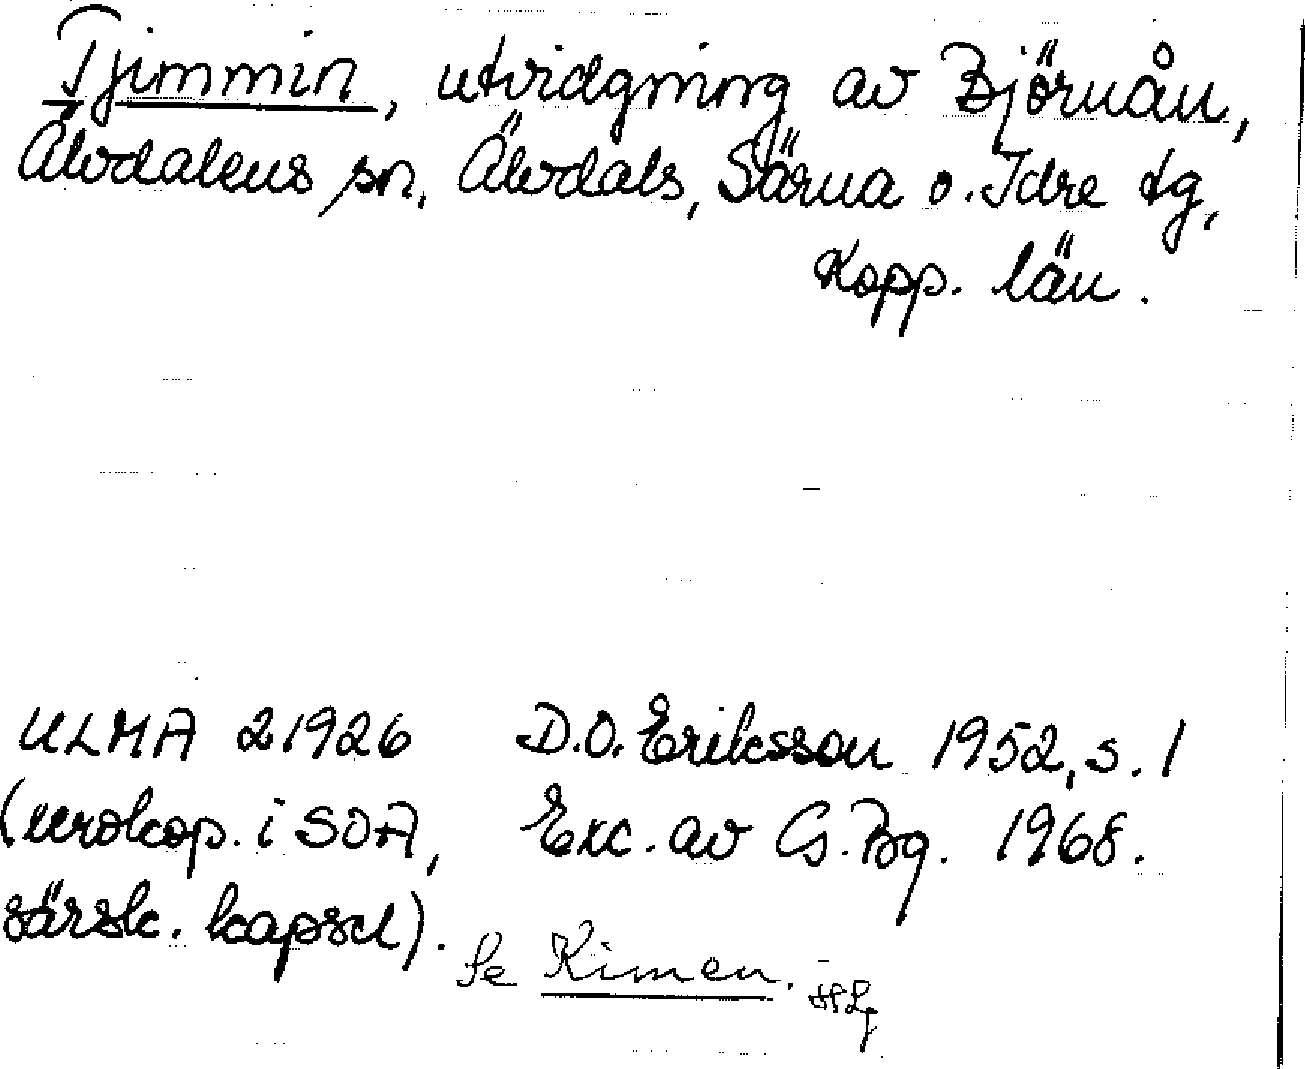 Tjimmin, utvidgning av Björnån,
Älvdalens sn, Älvdals, Särna o. Idre tg,
Kopp. län.
ULMA 21926 D.O. Eriksson 1952, s. 1
(xerokop. i SOA, Exc. av G. Bg. 1968.
särsk. kapsel).
Se Kimen.